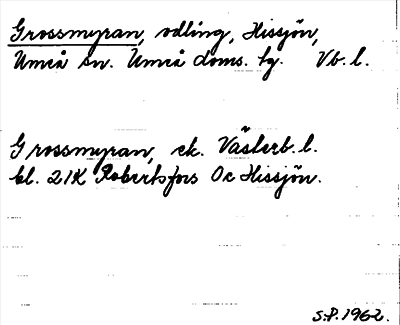 Grossmyran, odling, Hissjön,
Umeå sn. Umeå doms. hg. Vb. l.
Grossmyran, ek. Västerb. l.
bl. 21K Robertsfors Oc Hissjön.
S.P. 1962.